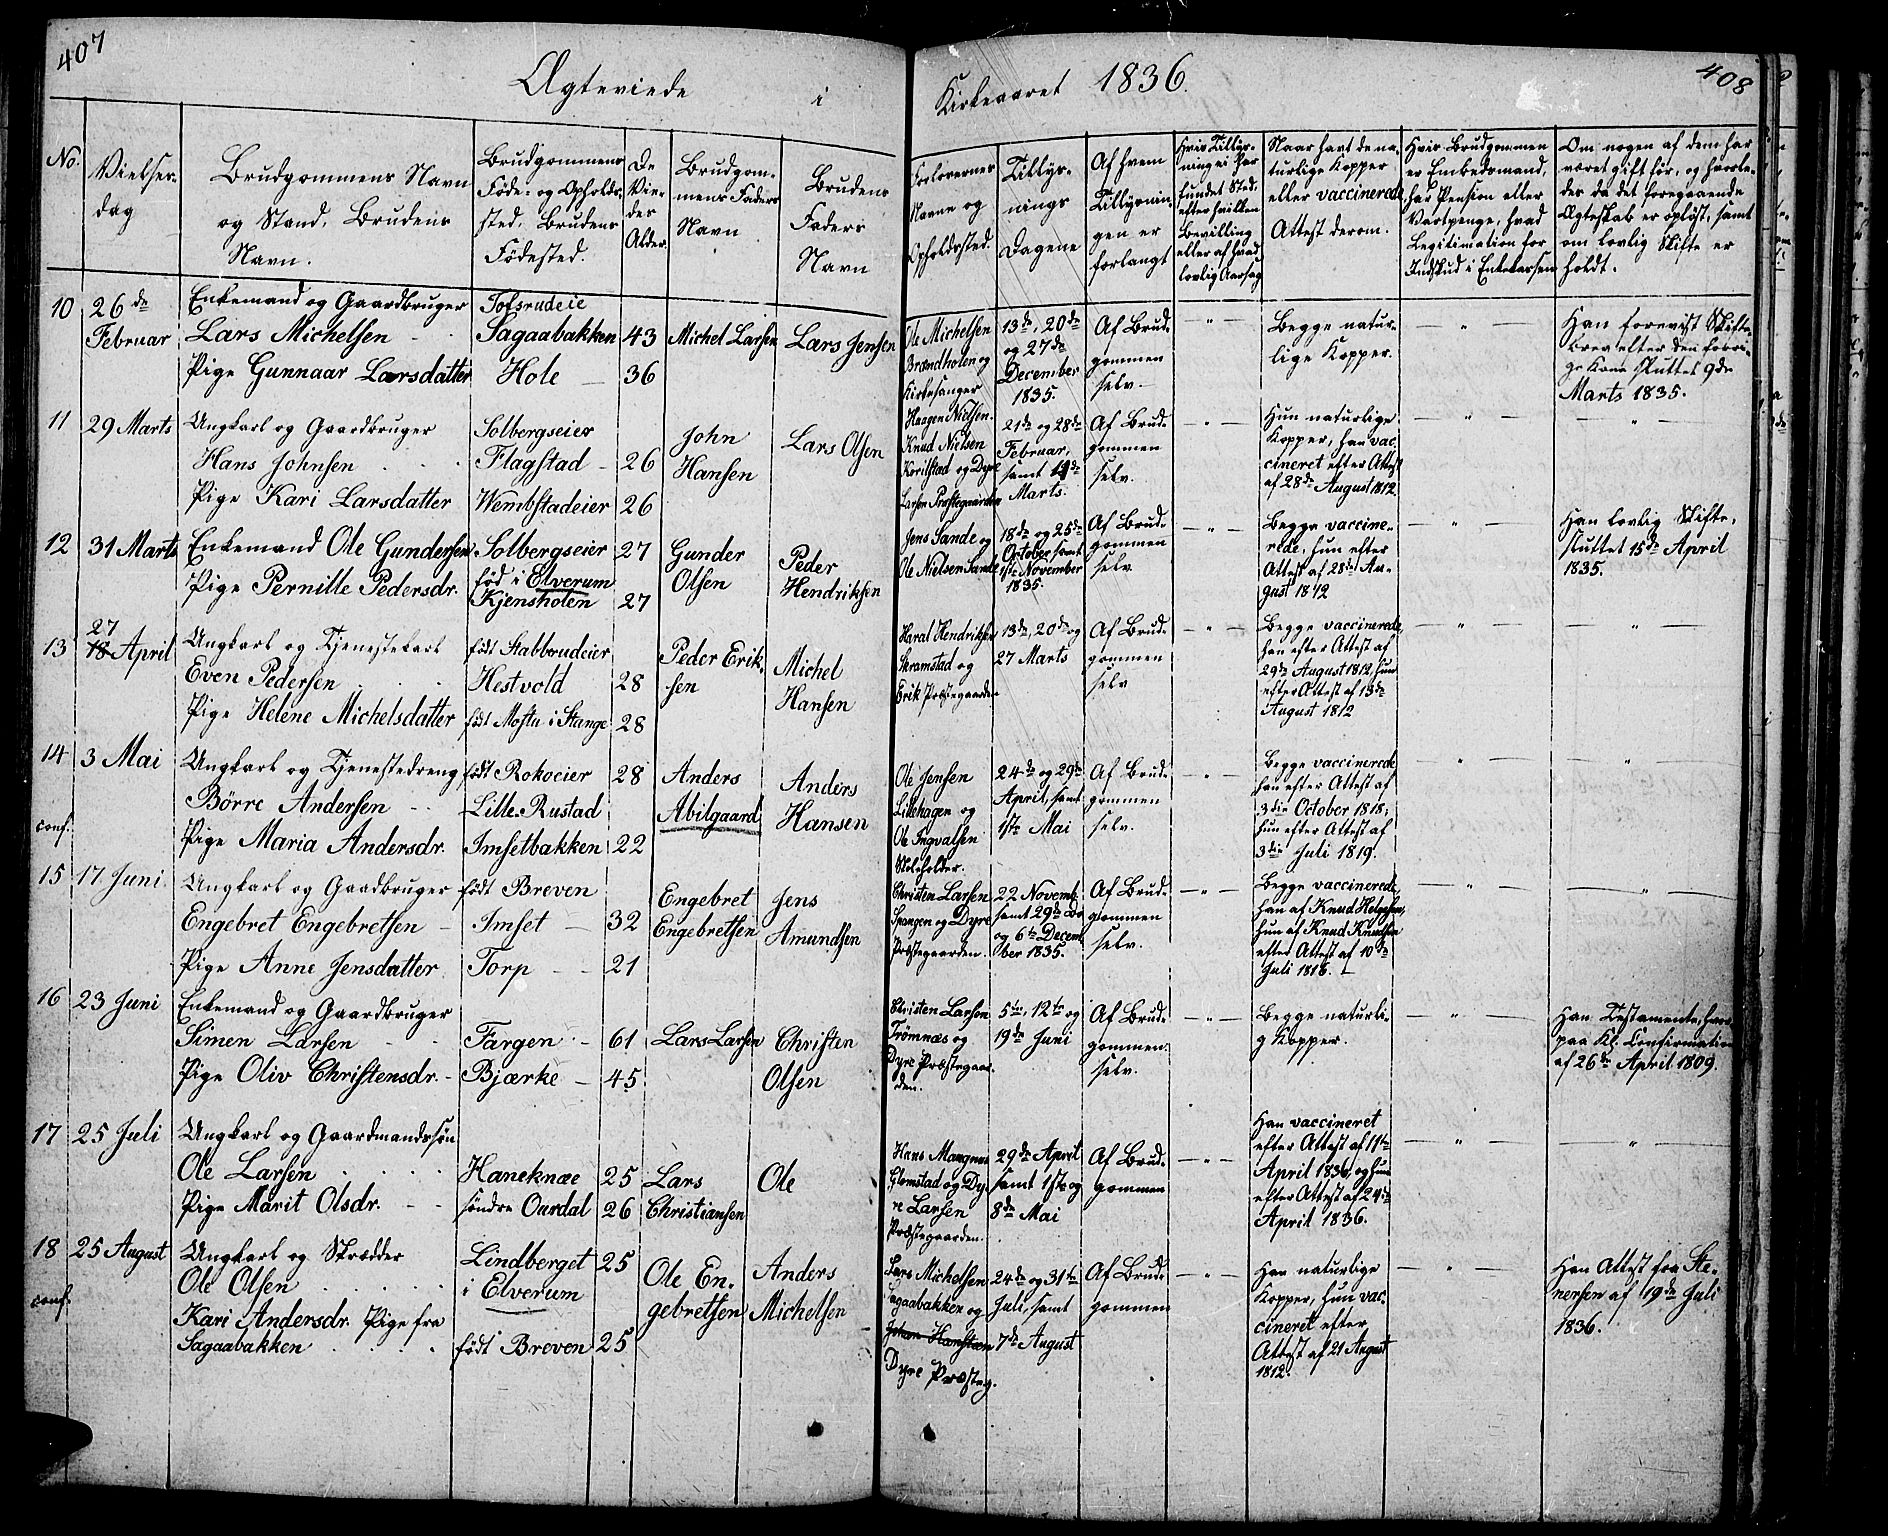 407
Ægteviede i
No.
Vielses-
dag
Brudgommens Navn
og Stand, Brudens
Navn.
Brudgommens
Føde- og Opholds-
sted. Brudens
Fødested.
De
Vie-
des
Alder.
Brudgom-
mens Faders
Navn
Brudens
Faders
Navn
10
26de
Februar
Enkemand og Gaardbruger
Lars Michelsen
Pige Gunnaar Larsdatter
Tofsrudeie
Sagaabakken 43
Hole 36
Michel Larsen
Lars Jensen
11
29 Marts
Ungkarl og Gaardbruger
Hans Johnsen
Pige Kari Larsdatter
Solbergseier
Flagstad 26
Wembstadeier 26
John
Hansen
Lars Olsen
12
31 Marts
Enkemand Ole Gundersen
Pige Pernille Pedersdr.
Solbergseier 27
fød i Elverum
Kjensholen 27
Gunder
Olsen
Peder
Hendriksen
13
27
18 April
Ungkarl og Tjenestekarl
Even Pedersen
Pige Helene Michelsdatter
født Stabbrudeier
Hestvold 28
født Mostu i Stange 28
Peder Erik-
sen
Michel
Hansen
14
conf.
3 Mai
Ungkarl og Tjenestedreng
Börre Andersen
Pige Maria Andersdr.
født Rokoeier 28
Lille-Rustad
Imsetbakken 22
Anders
Abilgaard
Anders
Hansen
15
17 Juni
Ungkarl og Gaadbruger
Engebret Engebretsen
Pige Anne Jensdatter
født Breven
Imset 32
Torp 21
Engebret
Engebretsen
Jens
Amundsen
16
23 Juni
Enkemand og Gaardbruger
Simen Larsen
Pige Oliv Christensdr.
Færgen 61
Bjærke 45
Lars Larsen
Christen
Olsen
17
25 Juli
Ungkarl og Gaardmandssøn
Ole Larsen
Pige Marit Olsdr.
Haneknæe 25
søndre Oardal 26
Lars
Christiansen
Ole
18
conf.
25 August
Ungkarl og Skrædder
Ole Olsen
Kari Andersdr. Pige fra
Sagaabakken
Lindberget 25
i Elverum
født Breven 25
Ole En-
gebretsen
Anders
Michelsen
Kirkeaaret 1836.
408
Forlovernes
Navne og
Opholdssted.
Tillys-
nings
Dagene
Af hvem
Tillysnin-
gen er
forlangt
Hvis Tillys-
ning ei har
fundet Sted,
efter hvilken
Bevilling
eller af hvad
lovlig Aarsag
Naar havt de na-
turlige Kopper
eller vaccinerede
Attest derom.
Hvis Brudgommen
er Embedsmand,
har Pension eller
Vartpenge, hvad
Legitimation for
Indskud i Enkekassen
Om nogen af dem har
været gift før, og hvorle-
des da det foregaaende
Ægteskab er opløst, samt
om lovlig Skifte er
holdt.
Ole Michelsen
Brændholen og
Kirkesanger
13de, 20de
og 27de
December
1835.
Af Brud-
gommen
selv.
Begge natur-
lige Kopper.
Han forevist Skifte-
brev efter den forri-
ge Kone sluttet 9de
Marts 1835.
Haagen Nielsen
Knud Nielsen
Korilstad og Dyre
Larsen Præstegaarden
21de og 28de
Februar,
samt 14de
Marts.
Af Brud-
gommen
selv.
Hun naturlige
Kopper, han vac-
cineret efter Attest
af 28de August 1812
Jens Sande og
Ole Nielsen Sande
18de og 25de
October samt
1ste November
1835.
Af Brud-
gommen
selv
Begge vaccine-
rede, hun efter
Attest af 28de Au-
gust 1812
Han lovlig Skifte,
sluttet 15de April
1835.
Haral Hendriksen
Skramstad og
Erik Præstegaarden
13de, 20de og
27 Marts
Af Brud-
gommen
selv
Begge vaccinerede,
han efter Attest af
29de August 1812, hun
efter Attest af 13de
August 1812
Ole Jensen
Likehagen og
Ole Ingvalsen
Skoleholder.
24de og 29de
April, samt
1ste Mai
Af Brud-
gommen
selv.
Begge vaccinerede
han efter Attest af
3die October 1818;
hun efter Attest af
3die Juli 1819.
Christen Larsen
Spangen og Dyre
Præstegaarden.
22 Novemb.
samt 29de do
og 6te Decem-
ber 1835.
Af Brud-
gommen
selv.
Begge vaccinerede,
han af Knud Helgesen,
hun af Knud Knudsen
efter Attest af 10de
Juli 1818.
Christen Larsen
Trømnæs og
Dyre Præstegaar-
den.
5te, 12te og
19de Juni
Af Brud-
gommen
selv.
Begge naturli-
g Kopper.
Han Testamente, hvor-
paa Kl. Confirmation
af 26de April 1809.
Hans Mangnus
Glomstad og Dy-
re Larsen
Præstegaarden.
29de April
samt 1ste og
8de Mai
Af Brud-
gommen
Han vaccineret
efter Attest af 11te
April 1836, og hun
efter Attest af 24de
April 1836.
Lars Michelsen
Sagaabakken og
Dyre Præsteg.
24de og 31te
Juli, samt
7de August
Af Brud-
gommen
Han naturlige
Kopper, hun vac-
cineret efter
Attest af 21 August
1812.
Han Attest fra Ste-
nersen af 19de Juli
1836.